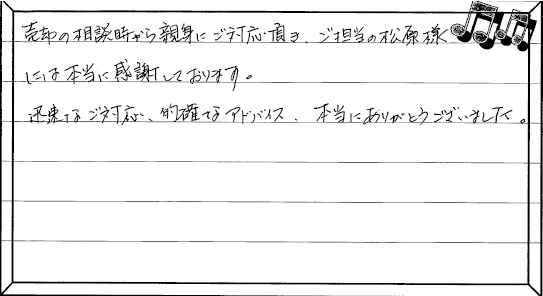 売却の相談時から親身にご対応頂き、ご担当の松原様
には本当に感謝しております。
迅速なご対応、的確なアドバイス、本当にありがとうございました。